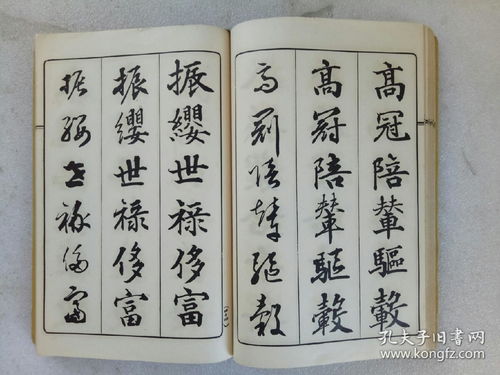 髙冠陪輦驅轂
髙冠陪輦驅轂
高冠陪輦驅轂
振纓世祿侈富
振纓世祿侈富
振纓世祿侈富
孔夫子旧书网
www.kongfz.com